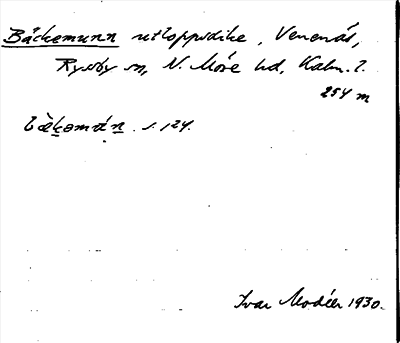 Bäckemunn utloppsdike, Venenäs,
Ryssby sn, N. Möre hd, Kalm. l.
254 m
bäkemán. s. 124.
Ivar Modéer 1930.